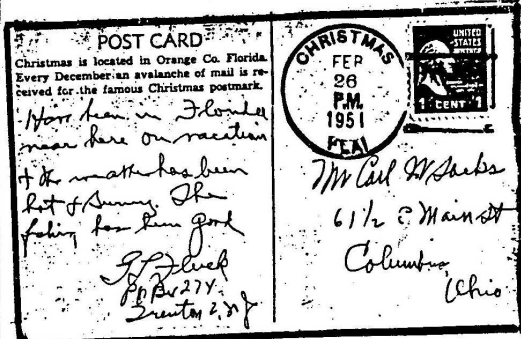 POST CARD
Christmas is located in Orange Co. Florida.
Every December an avalanche of mail is re-
ceived for the famous Christmas postmark.
Have been in Florida
near here on vacation
+ the weather has been
hot & sunny. The
fishing has been good
G L Fluck
PO Box 274
Trenton 2, N J
CHRISTMAS
FEB
26
P.M.
1951
FLA
UNITED
STATES
1 CENT 1
Mr Carl W Sacks
61 1/2 E Main St
Columbus
Ohio